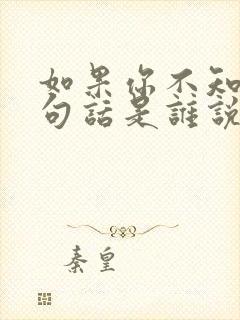 如果你不知
句話是誰說
秦皇